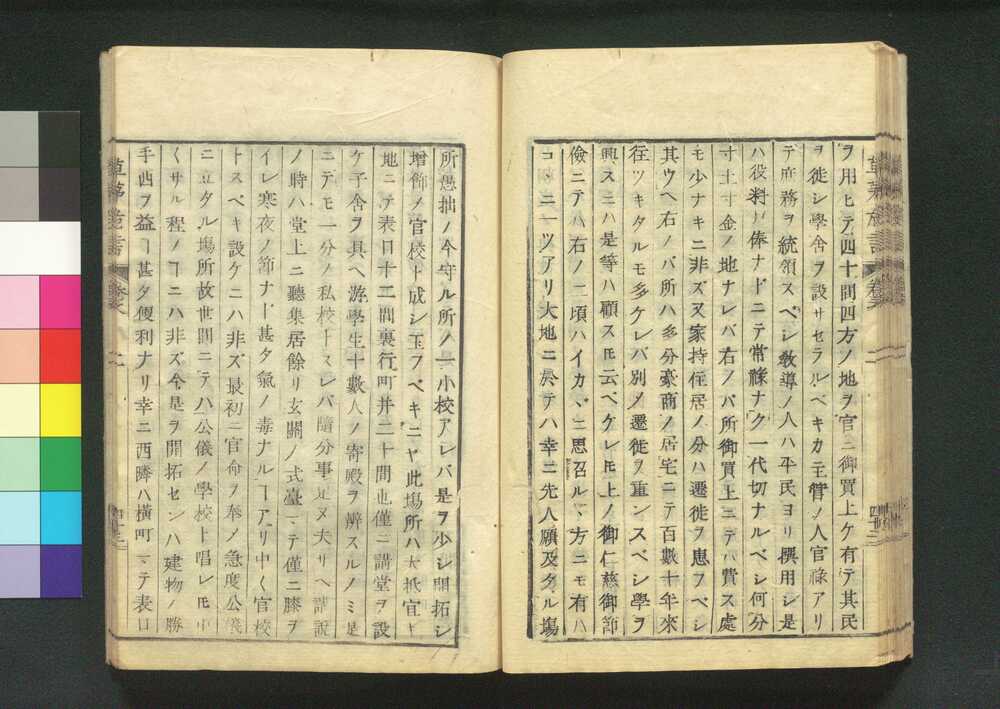 ヲ用ヒテ四十間四方ノ地ヲ官ニ御買上ケ有テ其民
ヲ徙シ學舍ヲ設サセラルベキカ主管ノ人官祿アリ
テ庶務ヲ統領スベシ敎導ノ人ハ平民ヨリ撰用シ是
ハ役料月俸ナドニテ常祿ナク一代切ナルベシ何分
寸土寸金ノ地ナレバ右ノバ所御買上ニテハ費ス處
モ少ナキニ非ズ又家持住居ノ分ハ遷徙ヲ患フベシ
其ウヘ右ノバ所ハ多分豪商ノ居宅ニテ百數十年來
住ツキタルモ多ケレバ別メ遷徙ヲ重ンスベシ學ヲ
興スニハ是等ハ顧スモ云ベケレ𪜈上ノ御仁慈御節
儉ニテハ右ノ二頃ハイカヾト思召ルヽ方ニモ有ハ
コ ニ一ツアリ大地ニ於テハ幸ニ先人願及タル塲
所愚拙ノ今守ル所ノ一小校アレバ是ヲ少シ開拓シ
增飾ノ官校ト成シ玉フベキニヤ此塲所ハ大抵官ヒ
地ニテ表口十二間裏行町并二十間也僅ニ講堂ヲ設
ケ子舍ヲ具ヘ游學生十數人ノ寄殿ヲ辨スルノミ是
ニテモ一分ノ私校トスレバ隨分事足メ夫リヘ講説
ノ時ハ堂上ニ聽集居餘リ玄關ノ式臺マテ僅ニ膝ヲ
イレ寒夜ノ節ナド甚タ氣ノ毒ナルヿアリ中〱官校
トスベキ設ケニハ非ズ最初ニ官命ヲ奉メ急度公儀
ニ立タル塲所故世間ニテハ公儀ノ學校ト唱レ𪜈中
〱サル程ノヿニハ非ズ今是ヲ開拓センハ建物ノ勝
手西ヲ益ヿ甚タ便利ナリ幸ニ西隣ハ橫町マテ表口